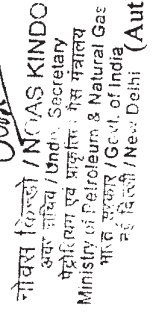 नोवस किन्डो / NOAS KINDO
अवर सचिव / Under Secretary
पेट्रोलियम एवं प्राकृतिक गैस मंत्रालय
Ministry of Petroleum & Natural Gas
भारत सरकार / Govt. of India
नई दिल्ली / New Delhi
(Aut